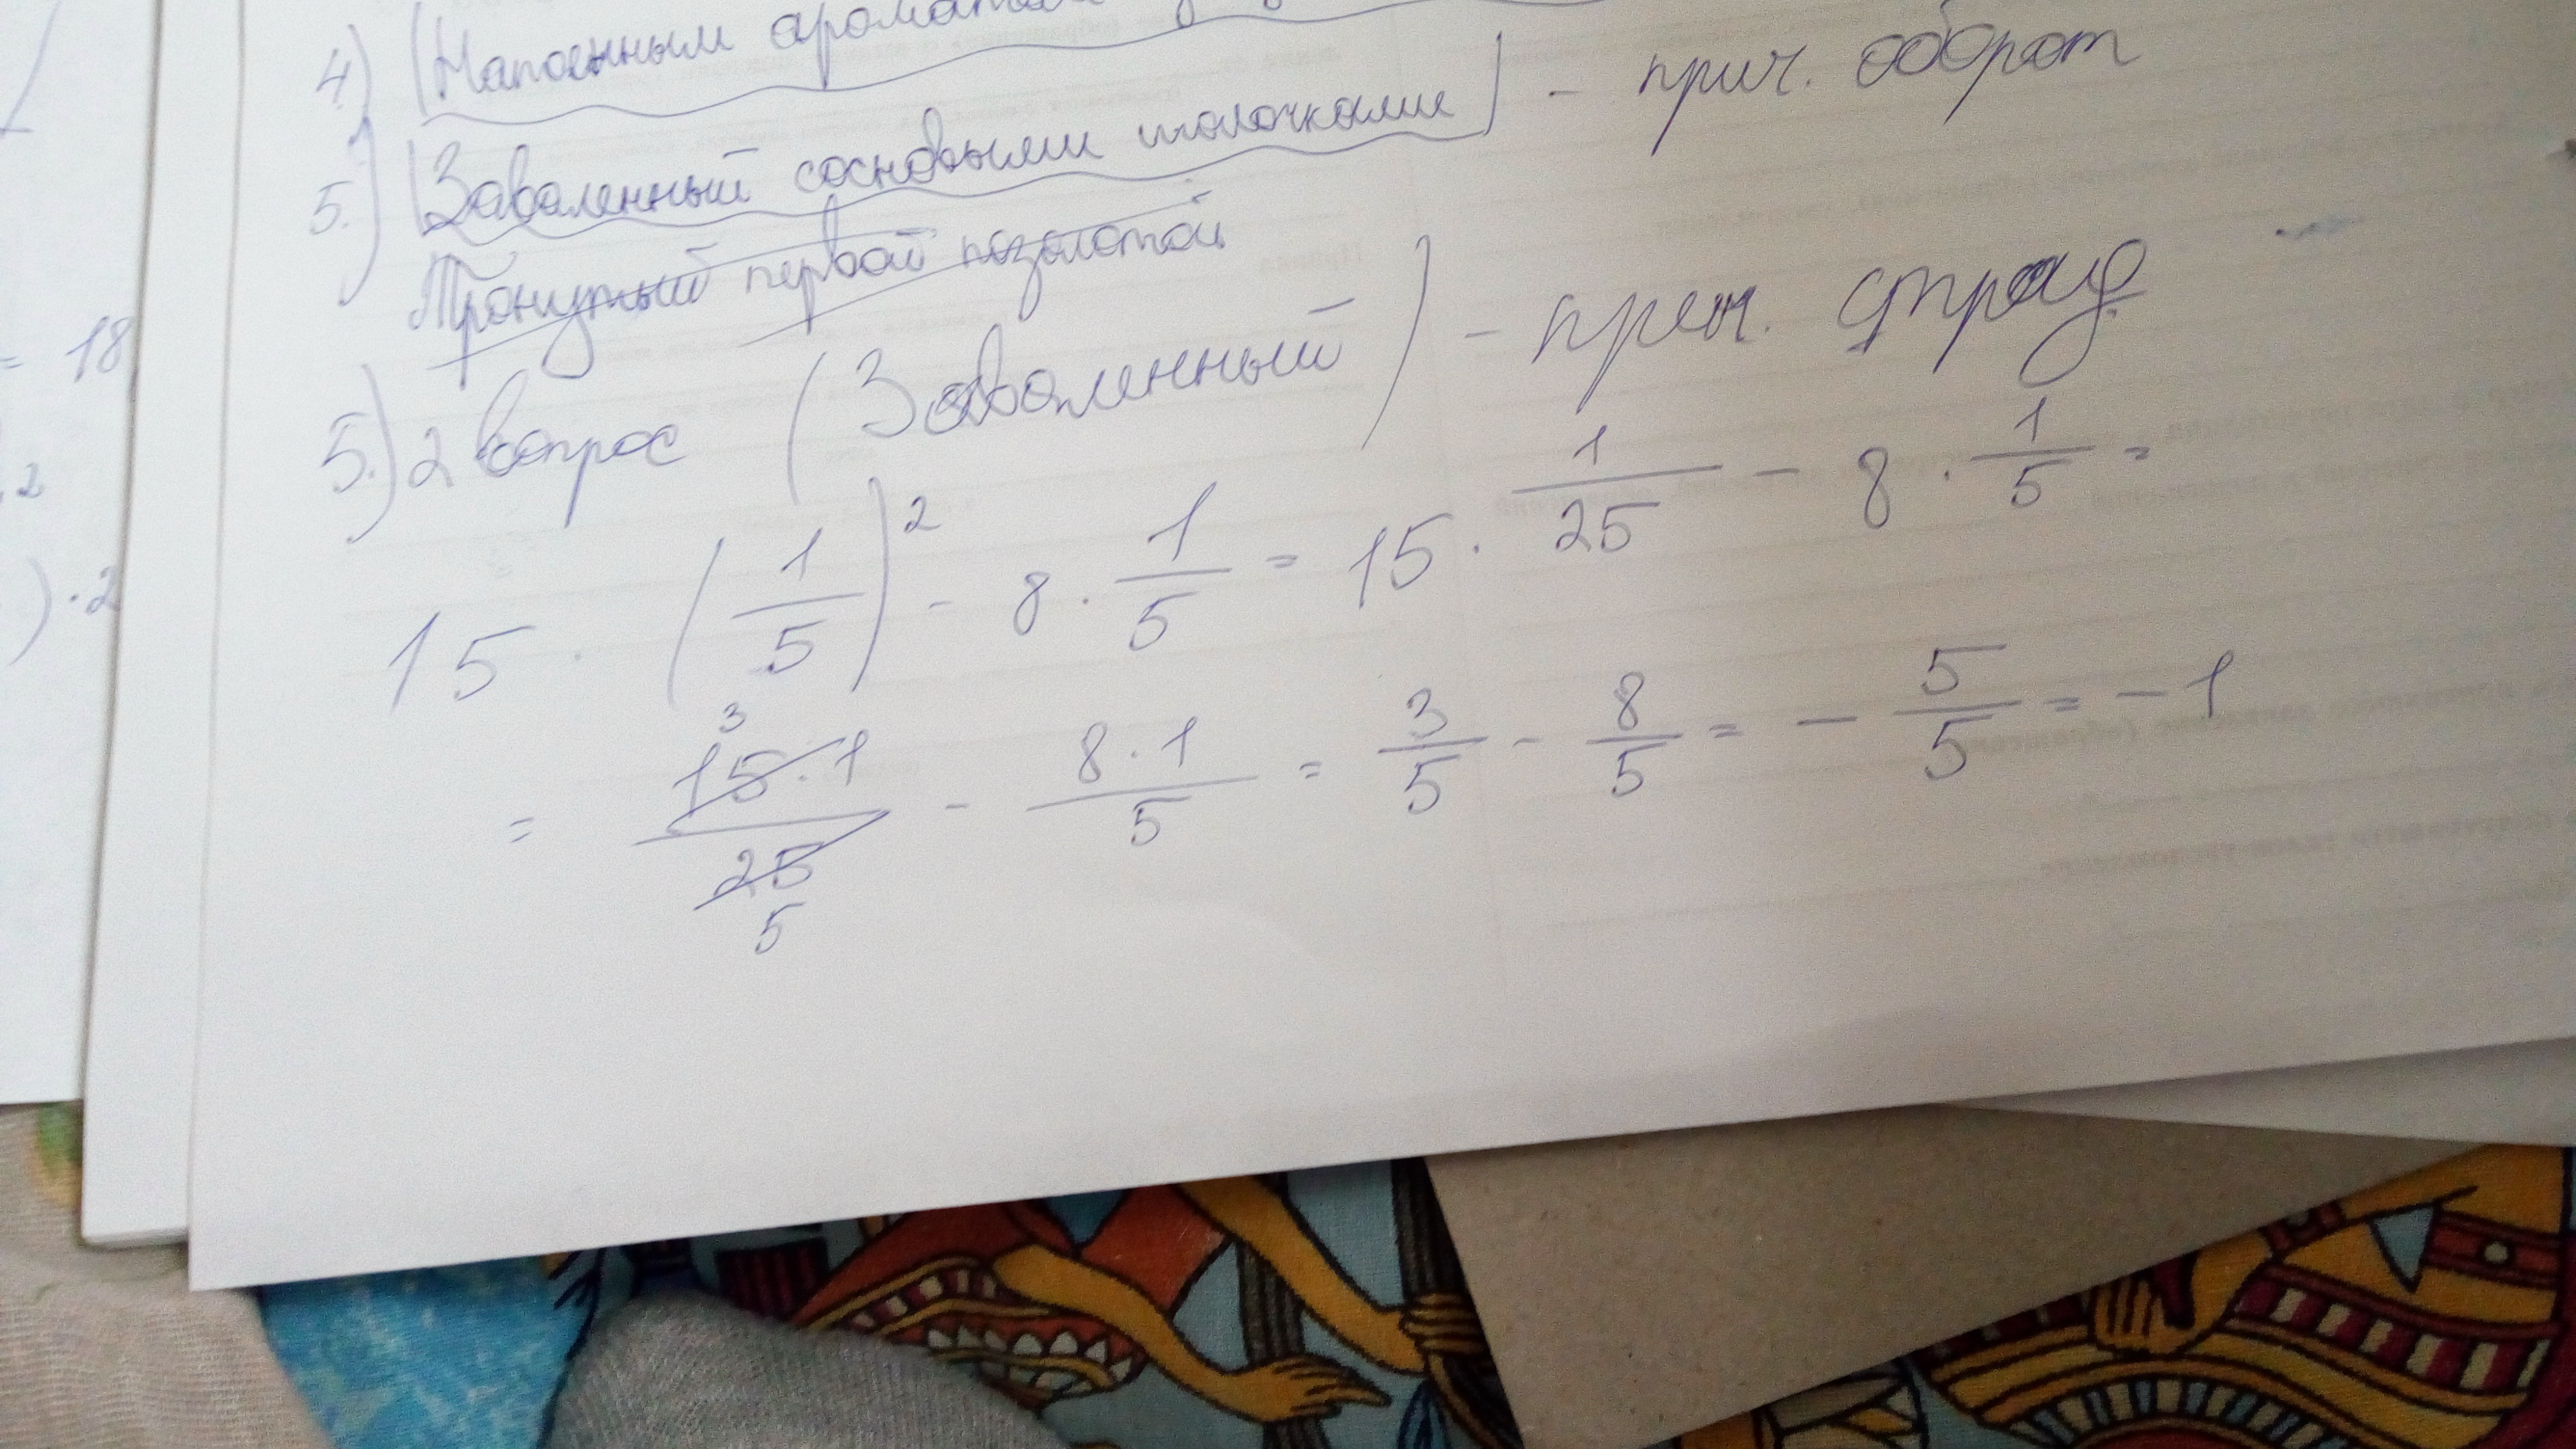 4.) (Напоенным ароматом
5.) (Заваленный сосновыми иголочками) - прич. оборот
Тронутый первой позолотой
5.) 2 вопрос (Заваленный) - прич. страд
15 · (1/5)² - 8 · 1/5 = 15 · 1/25 - 8 · 1/5 =
= 15·1/25 - 8·1/5 = 3/5 - 8/5 = - 5/5 = - 1
3
5
= 18
. 2
) · 2